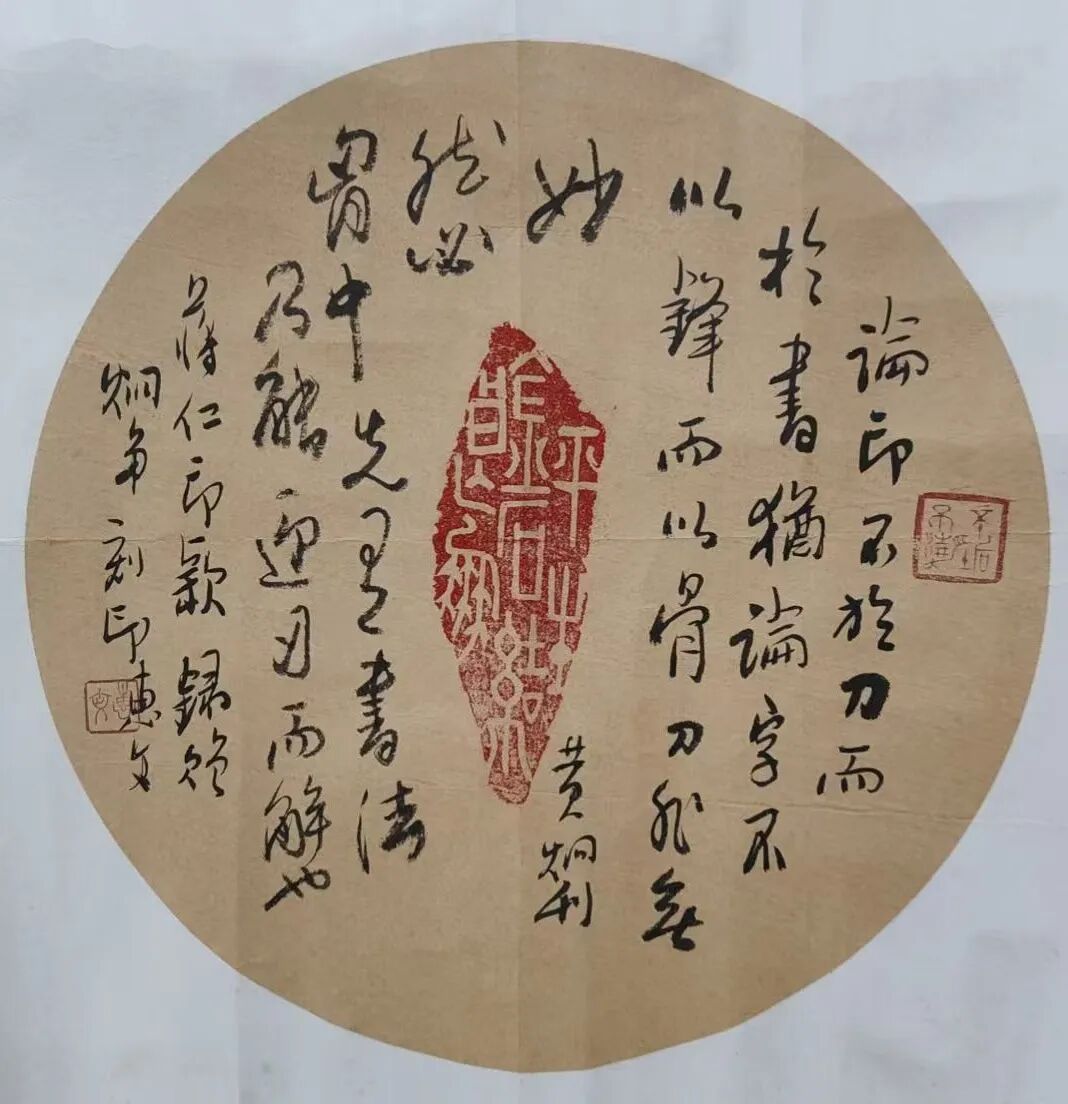 論印不於刀而
於書猶論字不
以鋒而以骨刀非無
妙
然必
胃中先有書法
乃能迎刃而解也
黄炯刊
蒋仁印款録贈
炯弟刻印惠文